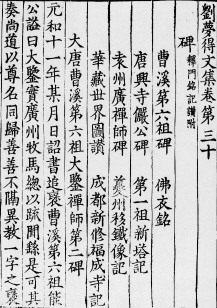 劉夢得文集卷第三十
碑 釋門銘記讃附
曹溪第六祖碑 佛衣銘
唐興寺儼公碑 第一祖新塔記
袁州廣禪師碑 夔州移鐵像記
華藏世界圖讃 成都新修福成寺記
大唐曹溪第六祖大鑒禪師第二碑
元和十一年某月日詔書追褒曹溪第六祖能
公謚曰大鑒實廣州牧馬總以疏聞繇是可其
奏尚道以尊名同歸善善不隔異教一字之褒